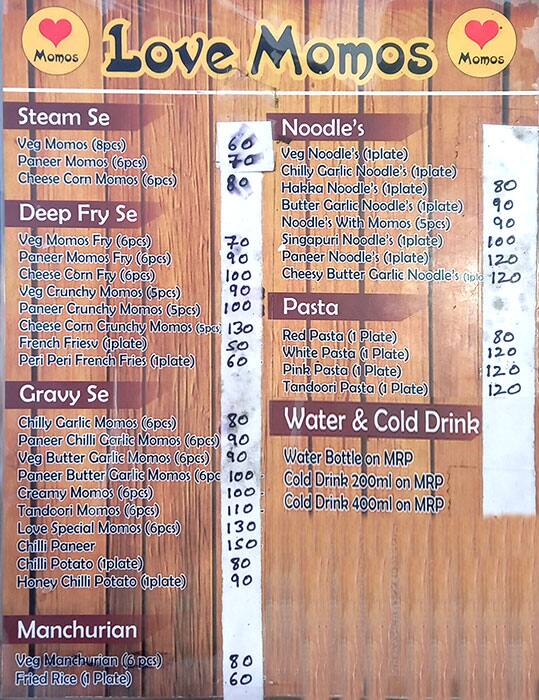 Momos
Love Momos
Momos
Steam Se
Veg Momos (8pcs) 60
Paneer Momos (6pcs) 70
Cheese Corn Momos (6pcs) 80
Deep Fry Se
Veg Momos Fry (6pcs) 70
Paneer Momos Fry (6pcs) 90
Cheese Corn Fry (6pcs) 100
Veg Crunchy Momos (5pcs) 90
Paneer Crunchy Momos (5pcs) 100
Cheese Corn Crunchy Momos (5pcs 130
French Friesv (1plate) 50
Peri Peri French Fries (1plate) 60
Gravy Se
Chilly Garlic Momos (6pcs) 80
Paneer Chilli Garlic Momos (6pcs) 90
Veg Butter Garlic Momos (6pcs) 90
Paneer Butter Garlic Momos (6pc 100
Creamy Momos (6pcs) 100
Tandoori Momos (6pcs) 110
Love Special Momos (6pcs) 130
Chilli Paneer 150
Chilli Potato (1plate) 80
Honey Chilli Potato (1plate) 90
Manchurian
Veg Manchurian (6 pcs) 80
Fried Rice (1 Plate) 60
Noodle's
Veg Noodle's (1plate)
Chilly Garlic Noodle's (1plate)
Hakka Noodle's (1plate) 80
Butter Garlic Noodle's (1plate) 90
Noodle's With Momos (5pcs) 90
Singapuri Noodle's (1plate) 100
Paneer Noodle's (1plate) 120
Cheesy Butter Garlic Noodle's (1pla 120
Pasta
Red Pasta (1 Plate) 80
White Pasta (1 Plate) 120
Pink Pasta (1 Plate) 120
Tandoori Pasta (1 Plate) 120
Water & Cold Drink
Water Bottle on MRP
Cold Drink 200ml on MRP
Cold Drink 400ml on MRP